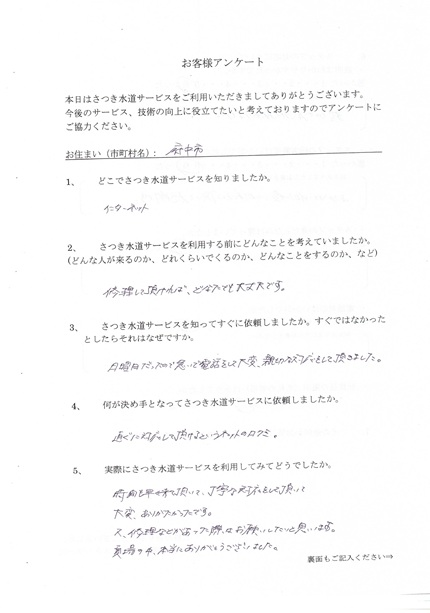 お客様アンケート
本日はさつき水道サービスをご利用いただきましてありがとうございます。
今後のサービス、技術の向上に役立てたいと考えておりますのでアンケートに
ご協力ください。
お住まい（市町村名）： 府中市
1、 どこでさつき水道サービスを知りましたか。
インターネット
2、 さつき水道サービスを利用する前にどんなことを考えていましたか。
(どんな人が来るのか、どれくらいでくるのか、どんなことをするのか、など)
修理して頂ければ、どなたでも大丈夫です。
3、 さつき水道サービスを知ってすぐに依頼しましたか。すぐではなかった
としたらそれはなぜですか。
日曜日だったので急いで電話をして大変、親切な対応をして頂きました。
4、 何が決め手となってさつき水道サービスに依頼しましたか。
直ぐに対応して頂けるというネットの口コミ。
5、 実際にさつき水道サービスを利用してみてどうでしたか。
時間を早く来て頂いて、丁寧な対応をして頂いて
大変、ありがたかったです。
又、修理などがあった際はお願いしたいと思います。
夏場の中、本当にありがとうございました。
裏面もご記入ください⇒